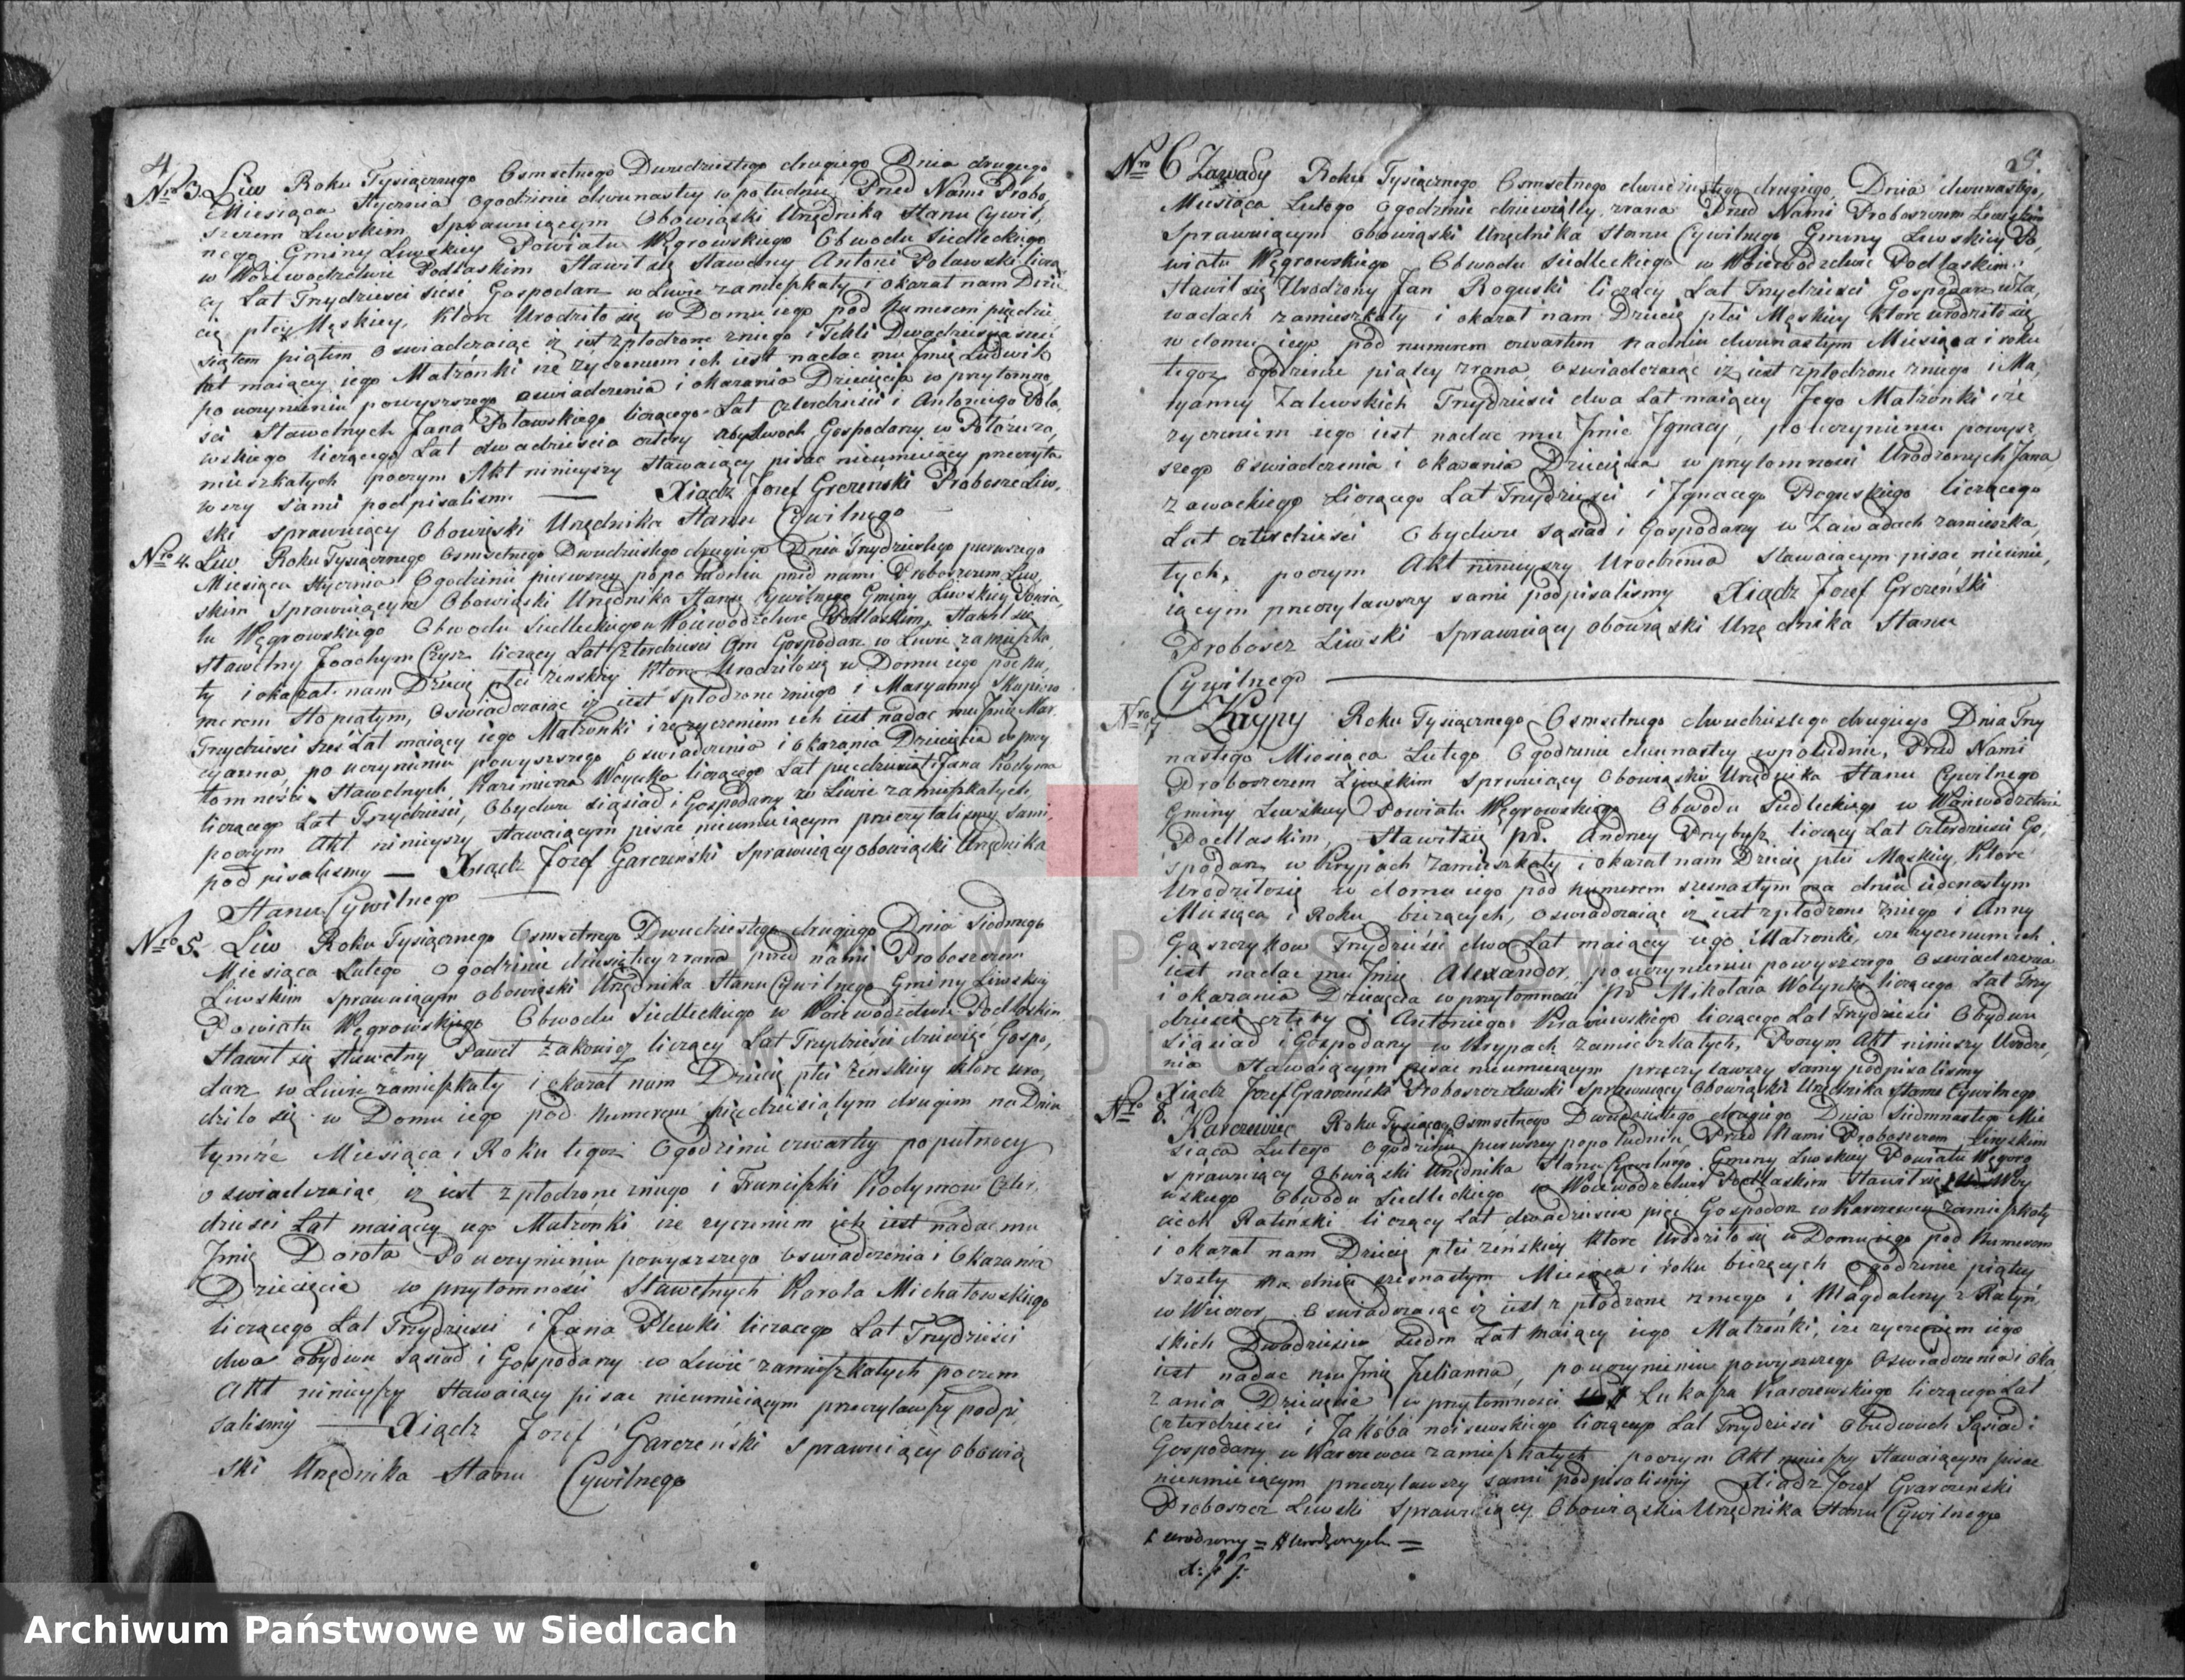 4
Nro 3. Liw Roku Tysiącznego Osmsetnego Dwudziestego drugiego Dnia drugiego
Miesiąca Stycznia ogodzinie dwunastey w południe Przed Nami Probo,
szczem Liwskim Sprawuiącym Obowiąski Urzędnika Stanu Cywil,
nego Gminy Liwskiey Powiatu Węgrowskiego Obwodu Siedleckiego
w Woiewodztwie Podlaskim Stawił się Sławetny Antoni Poławski licżą
cy Lat Trzydziesci sżesć Gospodarz w Liwie zamieszkały i okazał nam Dzie
cię płci Męskiey, Które Urodziło się w Domu iego pod Numerem piędzie
siątem piątem oswiadczaiąc iż iest zpłodzone zniego i Tekli Dwadziescia
lat maiącey iego Małżonki iże życzeniem ich iest nadac mu Jmie Ludwik
po uczynieniu powyższego oswiadczenia i okazania Dziecięcia w przytomno
sci Sławetnych Jana Poławskiego liczącego Lat czterdziesci i Antoniego Poła,
wskiego liczącego Lat dwadziescia cztery obydwoch Gospodarzy w
mieszkałych poczym Akt ninieyszy Stawaiący pisac nieumieiący przeczyta
wszy Sami podpisalismy — Xiądz Jozef Grczenski Proboszcz Liw,
ski sprawuiący Obowiąski Urzędnika Stanu Cywilnego
Nro 4. Liw Roku Tysiącznego Osmsetnego Dwudziestego drugiego Dnia Trzydziestego pierwszego
Miesiąca Stycznia Ogodzinie pierwszey popołudniu przed nami Proboszczem Liw
skim Sprawuiącym Obowiąski Urzędnika Stanu Cywilnego Gminy Liwskiey Powia,
tu Węgrowskiego Obwodu Siedleckiego w Woiewodztwie Podlaskim, Stawił się
Sławetny Joachym Czysz liczący Lat Czterdziesci Osm Gospodarz w Liwie zamieszka,
ły i okazał nam Dziecię płci żenskiey Które Urodziło się w Domu iego pod Nu,
merem sto piątym, Oswiadczaiąc iż iest spłodzone zniego i Maryanny Skupiow
Trzydziesci szesć Lat maiącey iego Małżonki iże życzeniem ich iest nadac mu Jmie Mar
cyanna, po uczynieniu powyższego oswiadczenia i okazania Dziecięcia w przy
tomności Sławetnych Kazimierza Woycika liczącego Lat piędziesiąt i Jana Kodyma
liczącego Lat Trzydziesci, Obydwu sąsiad i Gospodarzy w Liwie zamieszkałych,
poczym Akt ninieyszy stawaiącym pisac nieumieiącym przeczytalismy Sami,
podpisalismy — Xiądz Jozef Garczenski Sprawuiący obowiąski Urzędnika
Stanu Cywilnego —
Nro 5. Liw Roku Tysiącznego Osmsetnego Dwudziestego drugiego Dnia Siodmego
Miesiąca Lutego ogodzinie dziesiątey zrana przed nami Proboszczem
Liwskim sprawuiącym obowiąski Urzędnika Stanu Cywilnego Gminy Liwskiey
Powiatu Węgrowskiego Obwodu Siedleckiego w Woiewodztwie Podlaskim
Stawił się Sławetny Paweł Zakowicz liczący Lat Trzydziesci dziewięć Gospo,
darz w Liwie zamieszkały i okazał nam Dziecię płci żenskiey które uro,
dziło się w Domu iego pod Numerem piędziesiątym drugim na Dniu
tymże Miesiąca i Roku tegoż Ogodzinie czwartey popułnocy
oswiadczaiąc iż iest zpłodzone zniego i Franciszki Kodymow Czter,
dziesci Lat maiącey iego Małżonki iże życzeniem ich iest nadac mu
Jmię Dorota Po uczynieniu powyższego Oswiadczenia i Okazania
Dziecięcia w przytomności Sławetnych Karola Michałowskiego
liczącego Lat Trzydziesci i Jana Plewki liczącego Lat Trzydziesci
dwa obydwu sąsiad i Gospodarzy w Liwie zamieszkałych poczem
Akt ninieyszy Stawaiący pisac nieumieiącym przeczytawszy podpi,
salismy — Xiądz Jozef Garczeński sprawuiący obowią
ski Urzędnika Stanu Cywilnego
Nro 6 Zawady Roku Tysiącznego Osmsetnego dwudziestego drugiego, Dnia dwunastego,
Miesiąca Lutego ogodzinie dziewiątey zrana Przed Nami Proboszczem Liwskim
Sprawuiącym obowiąski Urzędnika Stanu Cywilnego Gminy Liwskiey Po,
wiatu Węgrowskiego Obwodu Siedleckiego w Woiewodztwie Podlaskim
Stawił się Urodzony Jan Roguski liczący Lat Trzydziesci Gospodarz w Za,
wadach zamieszkały i okazał nam Dziecię płci Męskiey Ktore urodziło się
w domu iego pod numerem czwartem na dniu dwunastym Miesiąca i roku
tegoz ogodzinie piątey zrana oswiadczaiąc iż iest zpłodzone zniego i Ma,
ryanny Zalewskich Trzydziesci dwa Lat maiący Jego Małżonki iże
życzeniem iego iest nadac mu Jmie Jgnacy, po uczynieniu powysz
szego Oswiadczenia i okazania Dziecięcia w przytomnosci Urodzonych Jana
Zawackiego Liczącego Lat Trzydziesci i Jgnacego Roguskiego liczącego
Lat czterdziesci Obydwu sąsiad i Gospodarzy w Zawadach zamieszka
łych, poczym Akt ninieyszy Urodzenia stawaiącym pisac nieumie,
iącym przeczytawszy sami podpisalismy Xiądz Jozef Grczeński
Proboscz Liwski Sprawuiący obowiąski Urzędnika Stanu
Cywilnego
Nro 7 Krypy Roku Tysiącznego Osmsetnego dwudziestego drugiego Dnia Trzy
nastego Miesiąca Lutego Ogodzinie dwunastey wpołudnie, Przed Nami
Proboszczem Liwskim Sprawuiący Obowiąski Urzędnika Stanu Cywilnego
Gminy Liwskiey Powiatu Węgrowskiego Obwodu Siedleckiego w Woiewodztwie
Podlaskim, Stawiłsię Pr. Andrzey Przybysz liczący Lat Czterdziesci Go,
spodarz w Krypach zamieszkały i okazał nam Dziecię płci Męskiey, Które
Urodziłosię w domu iego pod Numerem szesnastym na dniu iedenastym
Miesiąca i Roku bieżących, oswiadczaiąc iż iest zpłodzone zniego i Anny
Gąszczykow Trzydziesci dwa Lat maiący iego Małżonki, iże życzeniem ich
iest nadac mu Jmię Alexander, po uczynieniu powyższego Oswiadczenia
i okazania Dziecięcia wprzytomnosci Pr Mikołaia Wołynki liczącego Lat Trzy
dziesci cztery i Antoniego Kraiewskiego liczącego Lat Trzydziesci Obydwu
Sąsiad i Gospodarzy w Krypach zamieszkałych, Poczym Akt ninieszy Urodze,
nia Stawaiącym pisac nieumieiącym przeczytawszy samy podpisalismy
Xiądz Jozef Grarczeński Proboszcz Liwski Sprawuiący Obowiąski Urzędnika Stanu Cywilnego
Nro 8. Karczewiec Roku Tysiączny Osmsetnego Dwudziestego drugiego Dnia Siedmnastego Mie
siąca Lutego Ogodzinie pierwszey popołudniu, Przed Nami Proboszczem Liwskim
sprawuiący Obowiąski Urzędnika Stanu Cywilnego Gminy Liwskiey Powiatu Węgro
wskiego Obwodu Siedleckiego w Woiewodztwie Podlaskim Stawił się Woy
ciech Ratiński liczący Lat dwadziescia pięć Gospodarz w Karczewcu zamieszkały
i okazał nam Dziecię płci żeńskiey Które Urodziło się w Domu iego pod Numerem
szosty na dniu szesnastym Miesiąca i roku bieżących Ogodzinie piątey
w Wieczor, Oswiadczaiąc iż iest zpłodzone zniego i Magdaleny z Ratyń,
skich Dwadziescia siedm Lat maiący iego Małżonki, iże życzeniem iego
iest nadac mu Jmię Julianna, po uczynieniu powyższego Oswiadczenia i oka
zania Dziecięcia w przytomności Łukasza Karczewskiego liczącego Lat
Czterdziesci i Jakóba liczącego Lat Trzydziesci obudwoch Sąsiad i
Gospodarzy w Karczewcu zamieszkałych poczym Akt ninieszy Stawaiącym pisac
nieumieiącym przeczytawszy sami podpisalismy Xiądz Jozef Grarczenski
Proboszcz Liwski Sprawuiący Obowiąskie Urzędnika Stanu Cywilnego
urodzony = Urodzonych =
Archiwum Państwowe w Siedlcach